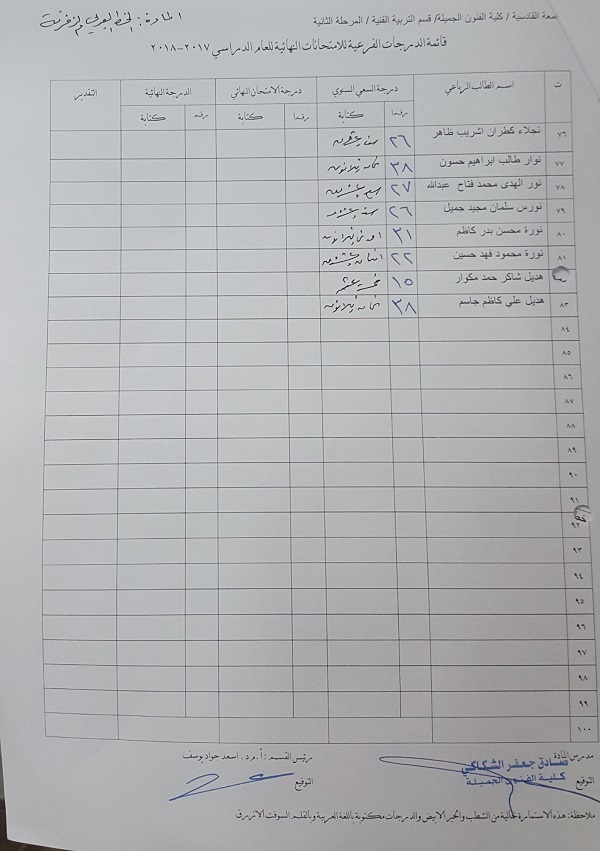 عة القادسية / كلية الفنون الجميلة/ قسم التربية الفنية / المرحلة الثانية
المادة: الخط العربي والزخرفة
قائمة الدرجات الفرعية للامتحانات النهائية للعام الدراسي ٢٠١٧-٢٠١٨
ت اسم الطالب الرباعي درجة السعي السنوي درجة الامتحان النهائي الدرجة النهائية التقدير
رقما كتابة رقما كتابة رقما كتابة
٧٦ نجلاء كطران اشريب ظاهر ٢٦ ستة وعشرون
٧٧ نوار طالب ابراهيم حسون ٣٨ ثمان وثلاثون
٧٨ نور الهدى محمد فتاح عبدالله ٢٧ سبع وعشرون
٧٩ نورس سلمان مجيد جميل ٢٦ ستة وعشرون
٨٠ نورة محسن بدر كاظم ٣١ احدى وثلاثون
٨١ نورة محمود فهد حسين ٢٢ اثنان وعشرون
هديل شاكر حمد مكوار ١٥ خمسة عشر
٨٣ هديل علي كاظم جاسم ٣٨ ثمان وثلاثون
٨٤
٨٥
٨٦
٨٧
٨٨
٨٩
٩٠
٩١
٩٢
٩٣
٩٤
٩٥
٩٦
٩٧
٩٨
٩٩
١٠٠
مدرس المادة رئيس القسم : أ.م.د. اسعد جواد يوسف
صادق جعفر الشكاكي
التوقيع كلية الفنون الجميلة التوقيع
ملاحظة: هذه الاستمارة خالية من الشطب والحبر الابيض والدرجات مكتوبة باللغة العربية وبالقلم السوفت الازرق